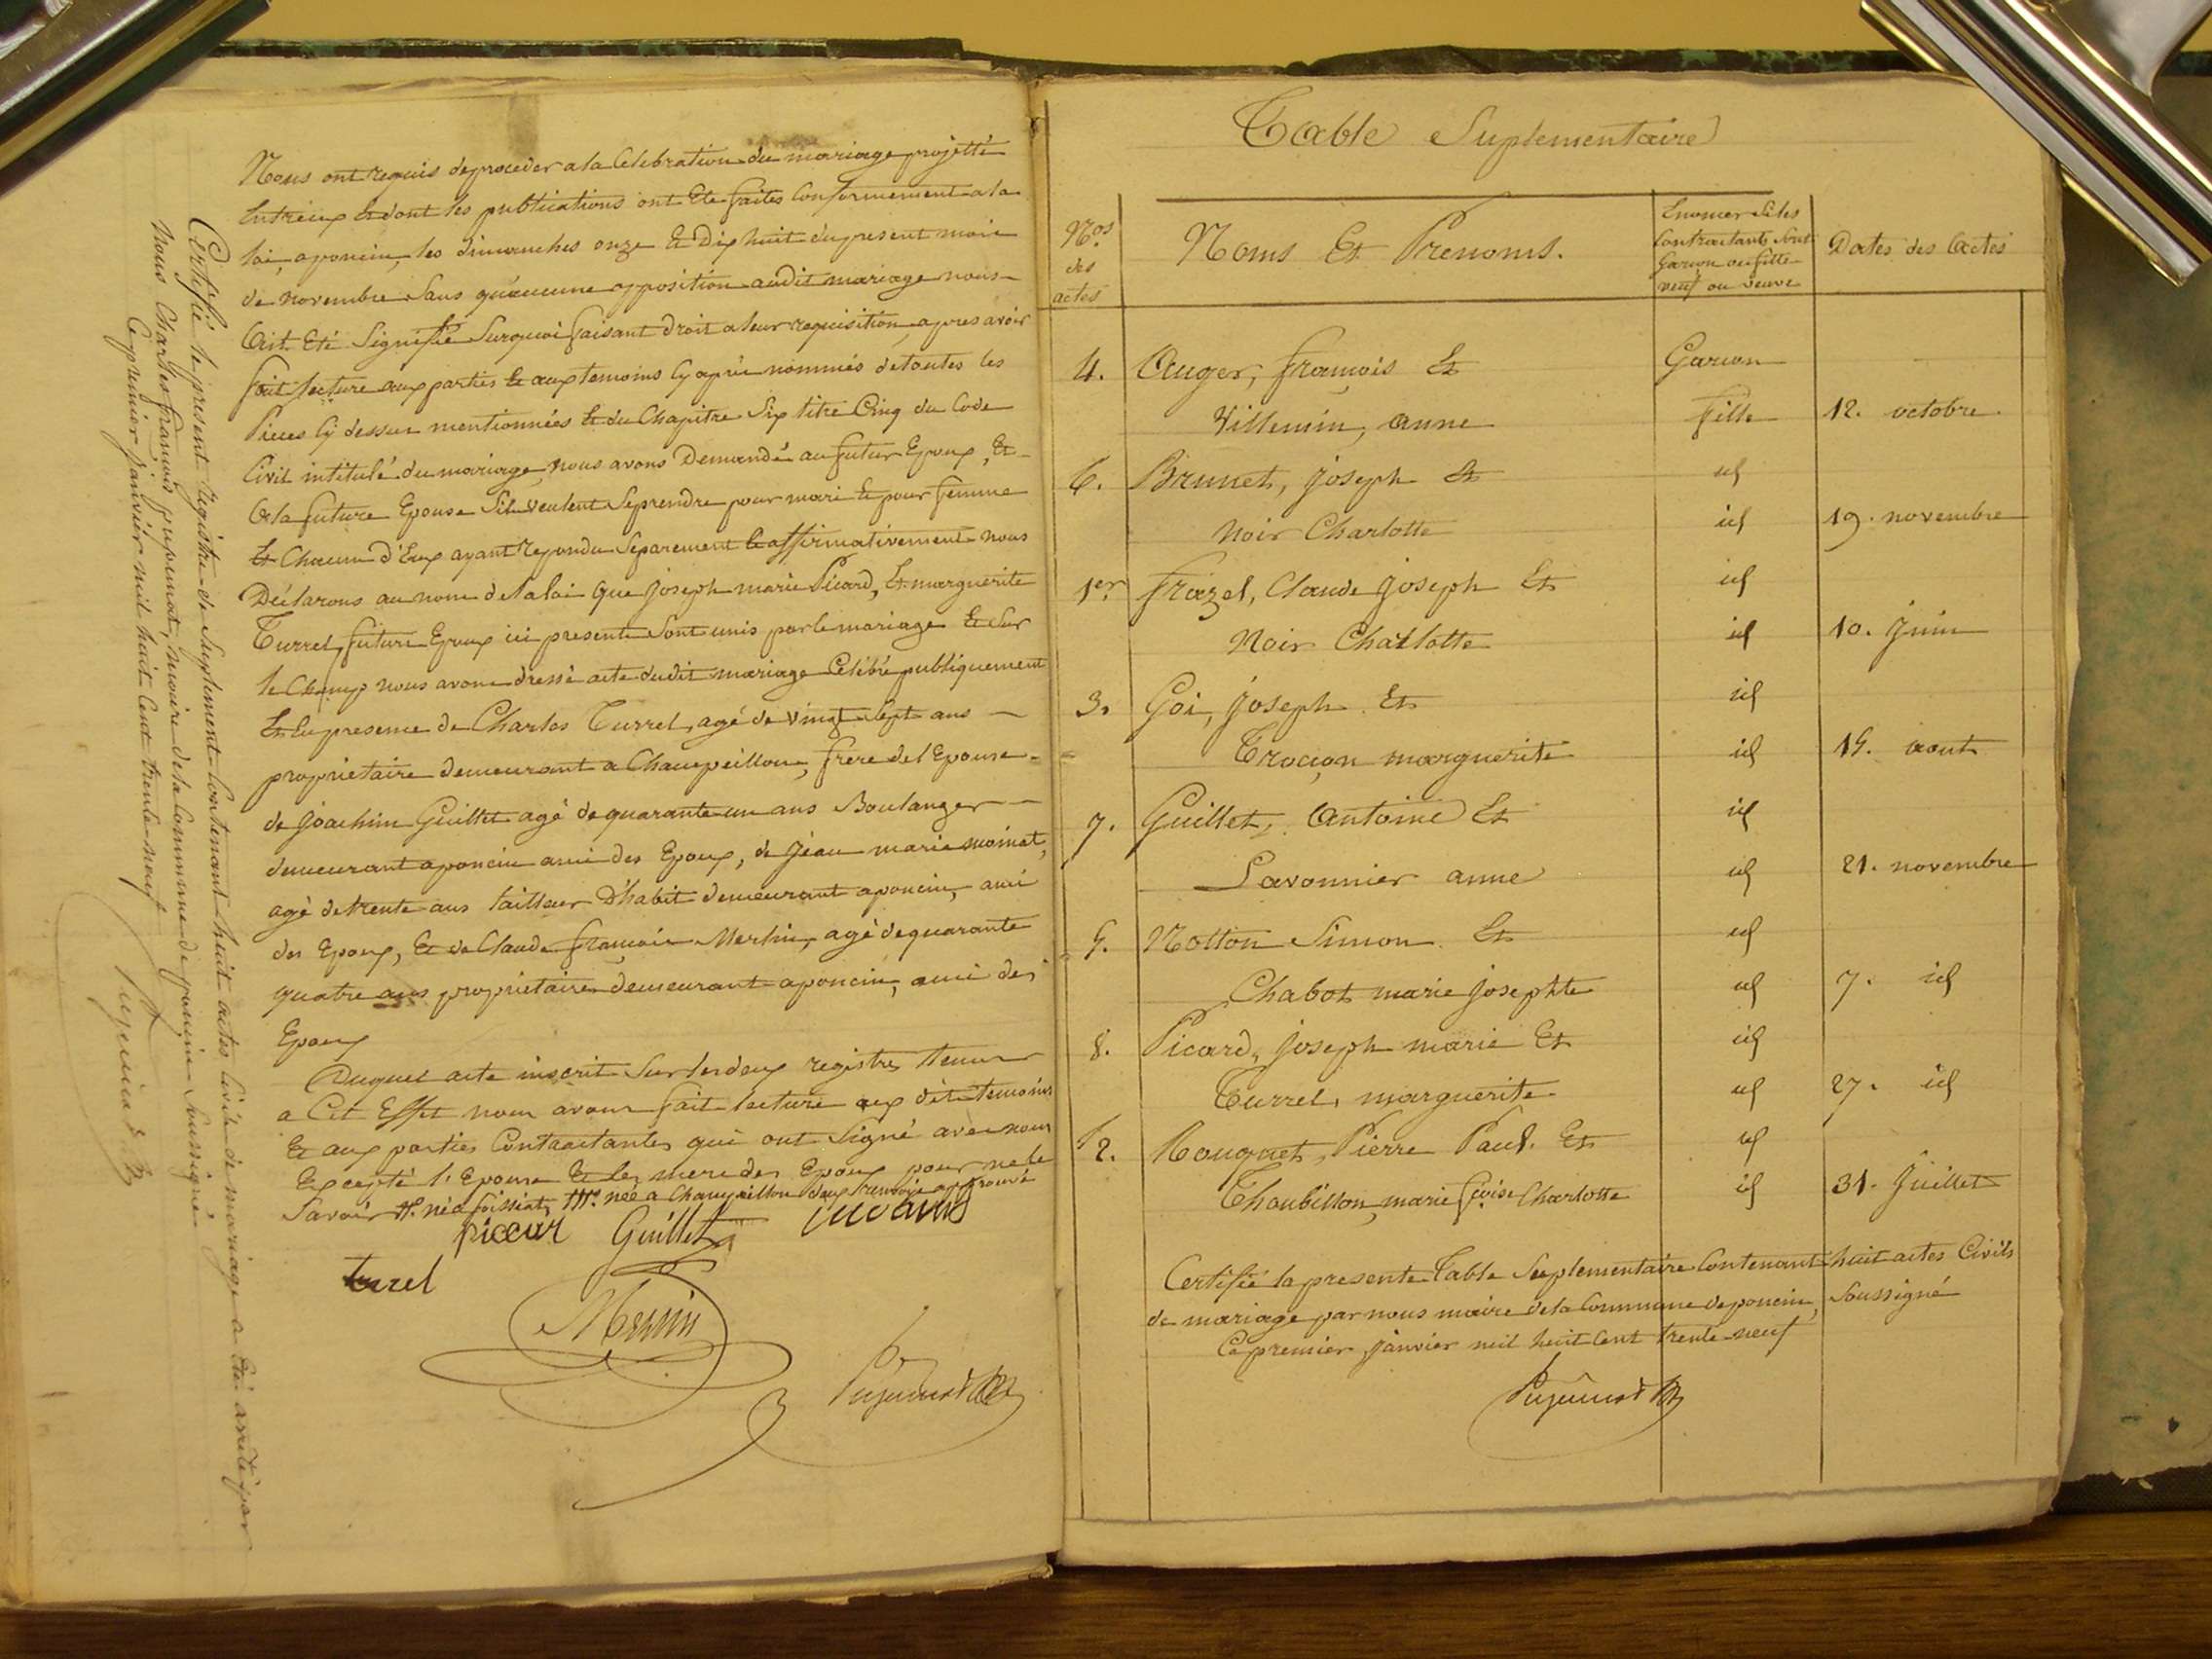 Nous ont requis deproceder a la Celebration du mariage projetté
Entreux Et dont les publications ont Ete faites Conformement a la
loi, aponcin, les dimanches onze Et Dix huit dupresent mois
de novembre Sans qu'aucune opposition audit mariage nous
Ait Eté Signifié Surquoi faisant droit a leur requisition, apres avoir
fait lecture aux parties Et aux temoins Cy après nommés de toutes les
Pieces Cy dessus mentionnées Et du Chapitre Six titre Cinq du Code
Civil intitulé du mariage, nous avons Demandé au futur Epoux, Et
a la future Epouse S'ils veulent Seprendre pour mari Et pour femme
Et Chacun d'Eux ayant repondu Separement Et affirmativement nous
Déclarons au nom de la loi que joseph marie Picard, Et marguerite
Turrel, futurs Epoux ici presents Sont unis par le mariage Et Sur
le Champ nous avons dressé acte dudit mariage Célébré publiquement
Et En presence de Charles Turrel, agé de vingt Sept ans
proprietaire demeurant a Champeillon, frere de l'Epouse
de Joachim Guillet agé de quarante un ans Boulanger
demeurant aponcin ami des Epoux, de Jean marie moinat,
agé de trente ans tailleur D'habit demeurant aponcin, ami
des Epoux, Et de Claude françois Merlin, agé de quarante
quatre ans proprietaire demeurant aponcin, ami des
Epoux
Duquel acte inscrit Sur les deux registres tenus
a Cet Effet nous avons fait lecture aux dits temoins
Et aux parties Contractantes qui ont Signé avec nous
Excepté l'Epouse Et les mere des Epoux pour ne le
Savoir #. né a foissiat, ##. née a Champeillon deux renvois approuvé
picar Guillet moinat
turel
Merlin
Pupunat
Certifié le present registre de Suplement Contenant huit actes Civils de mariage a Eté arrêté par
Nous Charles françois pupunat, maire de la Commune de poncin Soussigné
Ce premier janvier mil huit Cent trente neuf
Pupunat
Table Suplementaire
Nos. des actes
Noms Et Prenoms.
Enoncer Si les Contractants Sont Garcon ou fille veuf ou veuve
Dates des Actes
4. Auger, françois Et Garcon
Villemin, anne fille 12. octobre.
6. Brunet, joseph Et id
Noir Charlotte id 19. novembre
1er. frazel, Claude joseph Et id
Noir Charlotte id 10. Juin
3. Goi, joseph Et id
Trocçon marguerite id 15. aout
7. Guillet, Antoine Et id
Savonnier anne id 21. novembre
5. Notton Simon Et id
Chabot marie josephte id 7. id
8. Picard, joseph marie Et id
Turrel, marguerite id 27. id
2. Rouquet, Pierre Paul. Et id
Thoubillon, marie fcoise Charlotte id 31. Juillet
Certifié la presente Table Suplementaire Contenant huit actes Civils
de mariage par nous maire de la Commune de poncin, Soussigné
Ce premier janvier mil huit Cent trente neuf
Pupunat